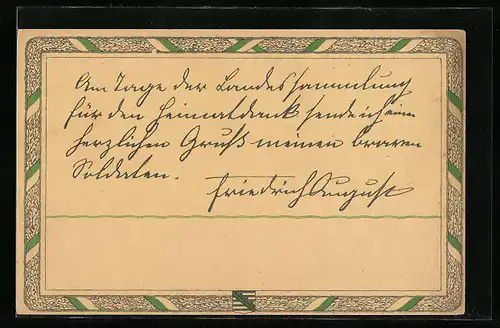 Am Tage der Landessammlung
für den Heimatdank sende ich einen
herzlichen Gruß meinen braven
Soldaten.
Friedrich August